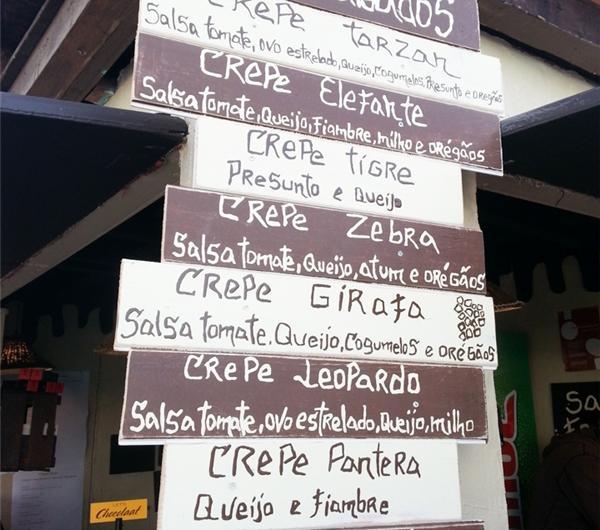 CREPE TARZAN
Salsa tomate, ovo estrelado, Queijo, Cogumelos, Presunto e oregãos
CREPE Elefante
Salsa tomate, Queijo, Fiambre, milho e orégãos
CREPE tigre
Presunto e Queijo
CREPE Zebra
Salsa tomate, Queijo, atum e orégãos
CREPE GiRafa
Salsa tomate, Queijo, Cogumelos e orégãos
CREPE Leopardo
Salsa tomate, ovo estrelado, Queijo, milho
CREPE Pantera
Queijo e fiambre
Chocolaat
Sa